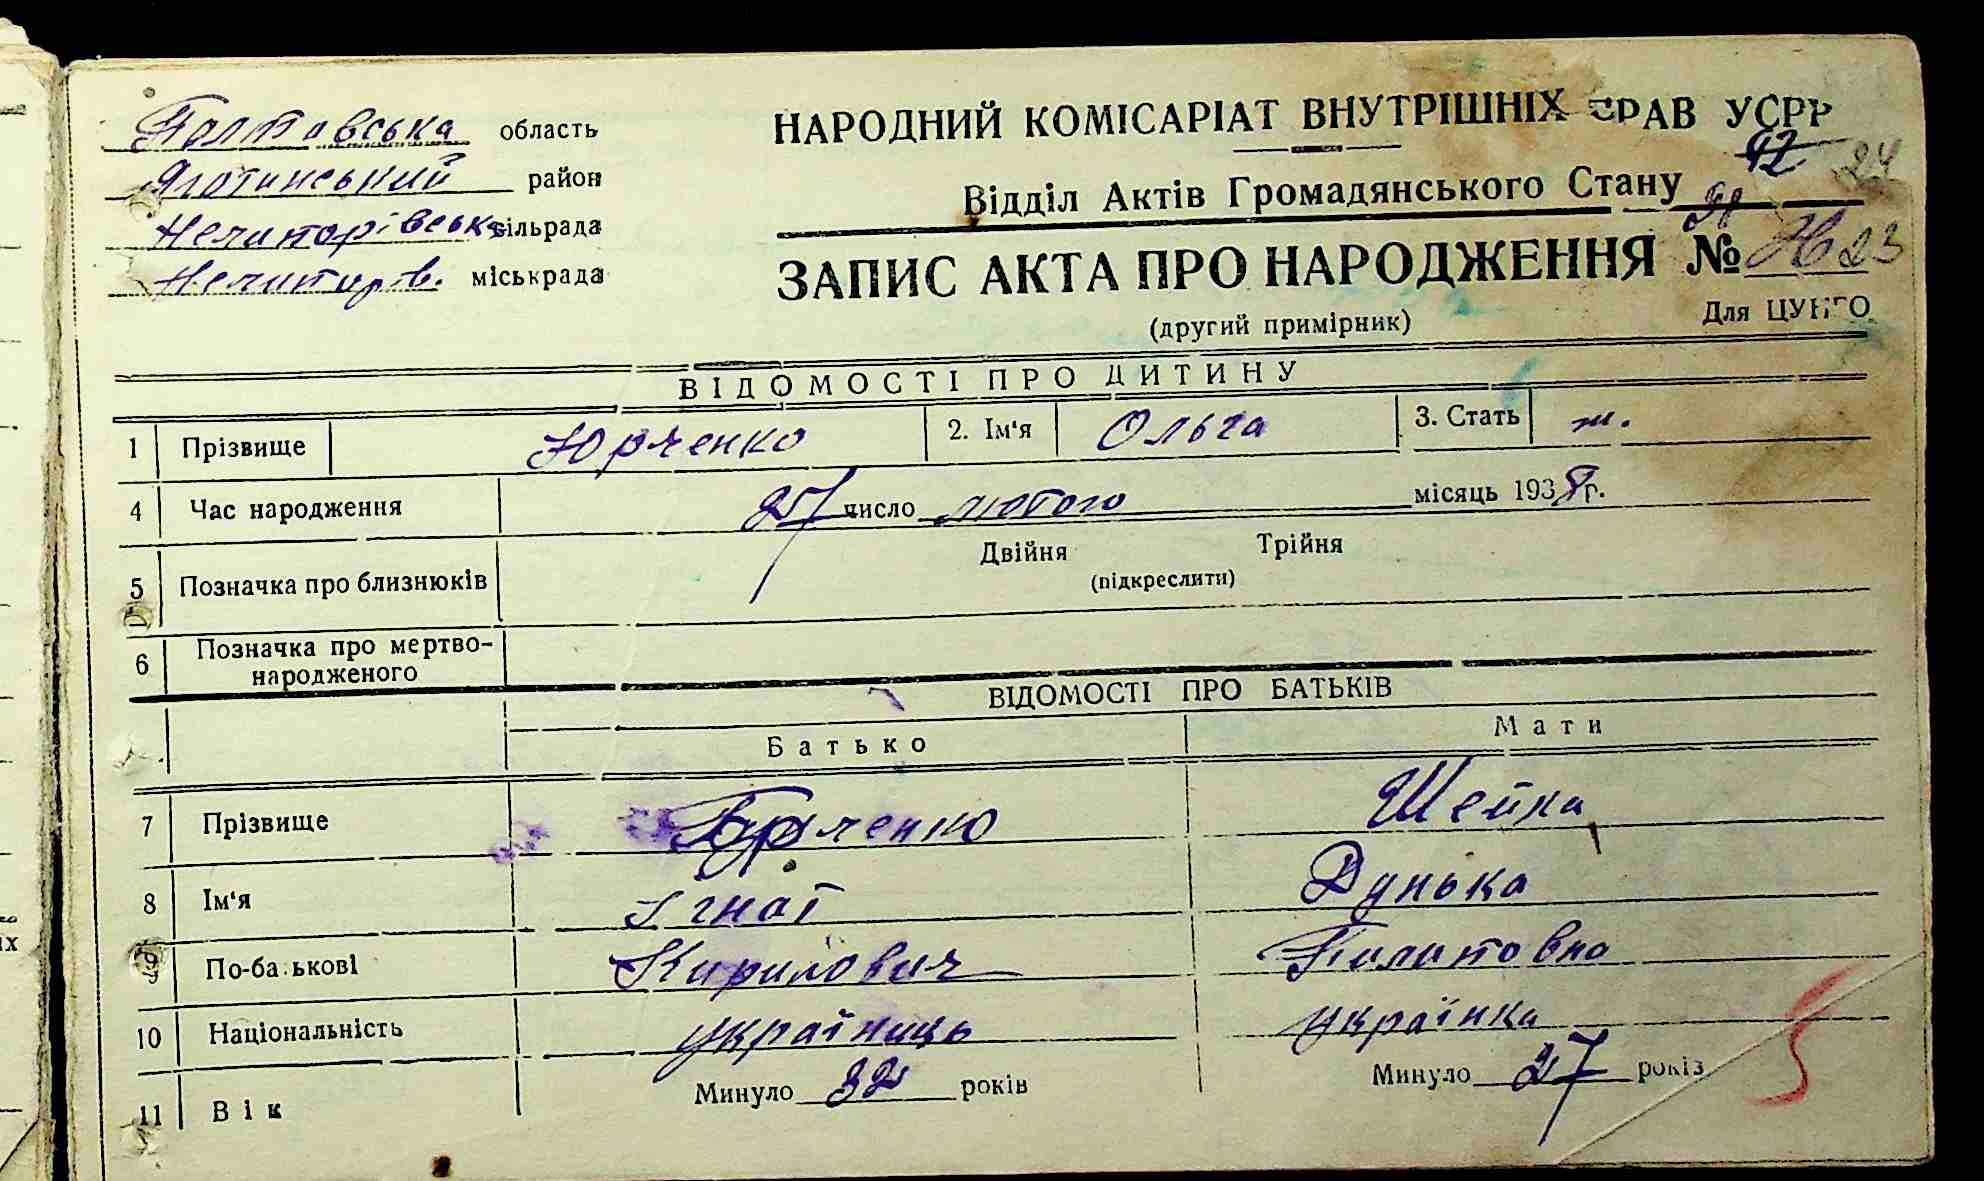 Полтавська область
Яготинський район
Нечипорівська сільрада
Нечипорів. міськрада
НАРОДНИЙ КОМІСАРІАТ ВНУТРІШНІХ СПРАВ УСРР
42 24
Відділ Актів Громадянського Стану
ЗАПИС АКТА ПРО НАРОДЖЕННЯ № 23
(другий примірник)
Для ЦУНГО
ВІДОМОСТІ ПРО ДИТИНУ
1 Прізвище Юрченко 2. Ім'я Ольга 3. Стать ж.
4 Час народження 27 число лютого місяць 1938 р.
5 Позначка про близнюків Двійня Трійня
(підкреслити)
6 Позначка про мертво-
народженого
ВІДОМОСТІ ПРО БАТЬКІВ
Батько Мати
7 Прізвище Юрченко Шейка
8 Ім'я Ігнат Дунька
9 По-батькові Кирилович Пилиповна
10 Національність українець українка
11 Вік Минуло 32 років Минуло 27 років